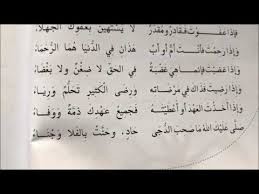 فإذا عفوت فقادرا ومقدر لا يستهين بعفوك الجهلا
وإذا رحمت فأنت أم أو أب هذان في الدنيا هما الرحما
وإذا غضبت فإنما هي غضبة في الحق لا ضغن ولا بغضا
وإذا رضيت فذاك في مرضاته ورضى الكثير تحلم ورياء
وإذا أخذت العهد أو أعطيته فجميع عهدك ذمة ووفاء
صلى عليك الله ما صحب الدجى حاد، وحنت بالفلا وجناء